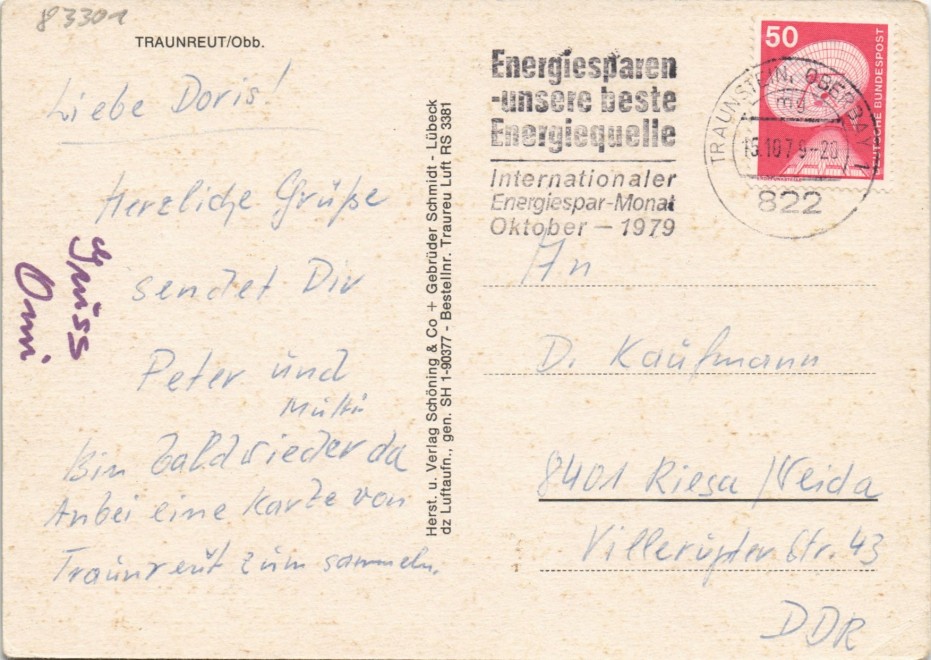 83301
TRAUNREUT/Obb.
Liebe Doris!
Herzliche Grüße
sendet Dir
Peter und
Mutti
Bin bald wieder da
Anbei eine Karte von
Traunreut zum sammeln.
Gruss
Omi
Herst. u. Verlag Schöning & Co + Gebrüder Schmidt - Lübeck
dz Luftaufn., gen. SH 1-90377 - Bestellnr. Traureu Luft RS 3381
Energiesparen
-unsere beste
Energiequelle
Internationaler
Energiespar-Monat
Oktober - 1979
50
DEUTSCHE BUNDESPOST
TRAUNSTEIN, OBERBAY 1
mz
15.10.79-20
822
An
D. Kaufmann
8401 Riesa/Weida
Villerupter Str. 43
DDR